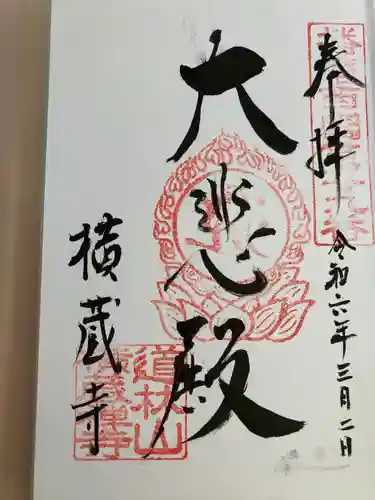 奉拝
令和六年三月二日
大悲殿
横蔵寺
道林山
横蔵禅寺